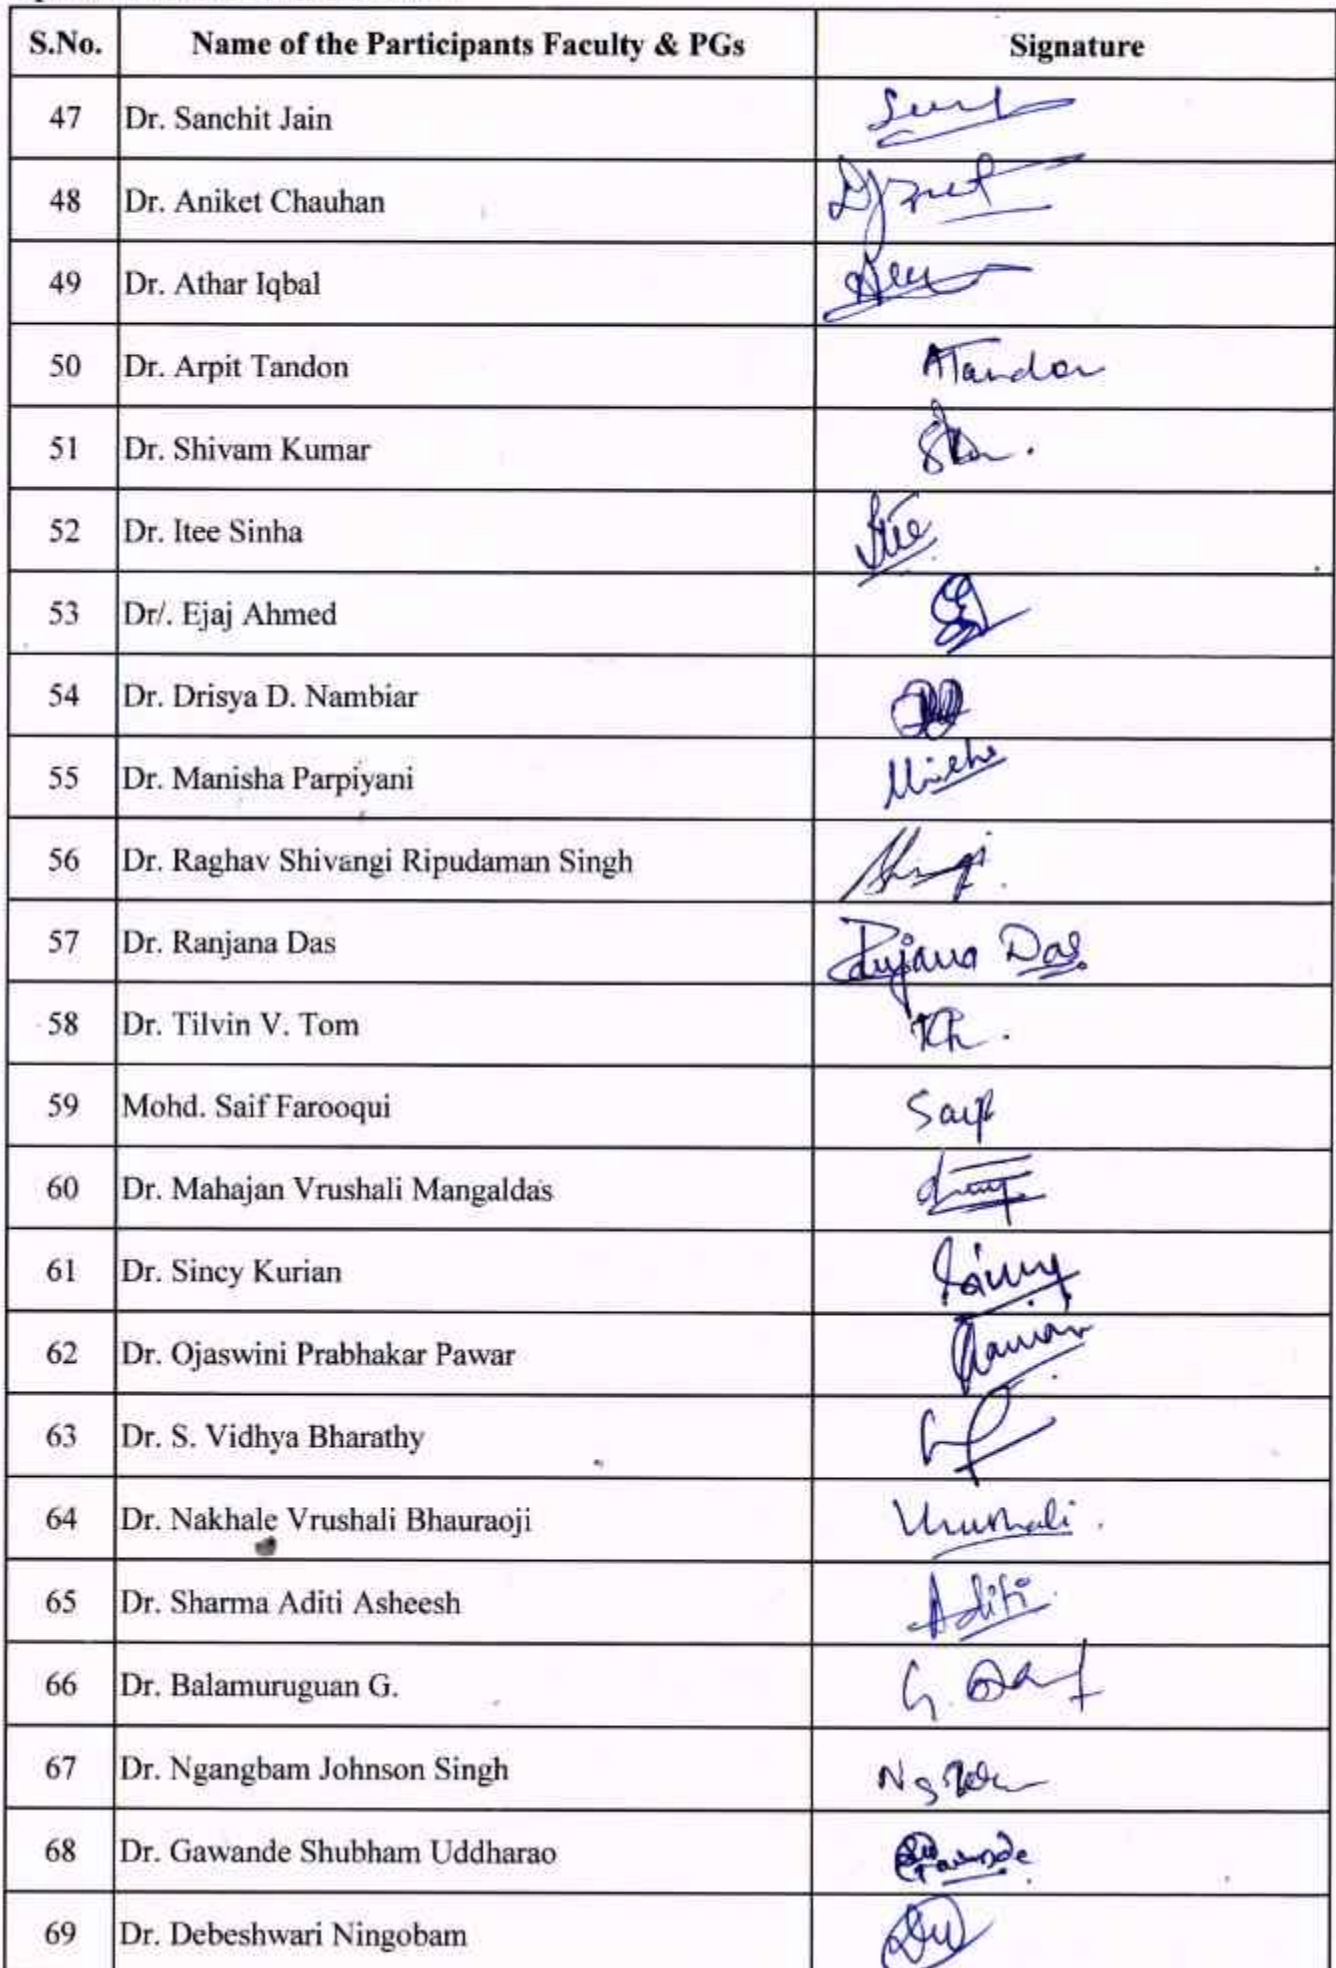 S.No. Name of the Participants Faculty & PGs Signature
47 Dr. Sanchit Jain
48 Dr. Aniket Chauhan
49 Dr. Athar Iqbal
50 Dr. Arpit Tandon ATandon
51 Dr. Shivam Kumar
52 Dr. Itee Sinha Itee
53 Dr/. Ejaj Ahmed
54 Dr. Drisya D. Nambiar
55 Dr. Manisha Parpiyani
56 Dr. Raghav Shivangi Ripudaman Singh
57 Dr. Ranjana Das Ranjana Das
58 Dr. Tilvin V. Tom
59 Mohd. Saif Farooqui Saif
60 Dr. Mahajan Vrushali Mangaldas
61 Dr. Sincy Kurian
62 Dr. Ojaswini Prabhakar Pawar
63 Dr. S. Vidhya Bharathy
64 Dr. Nakhale Vrushali Bhauraoji Vrushali.
65 Dr. Sharma Aditi Asheesh Aditi
66 Dr. Balamuruguan G.
67 Dr. Ngangbam Johnson Singh
68 Dr. Gawande Shubham Uddharao
69 Dr. Debeshwari Ningobam